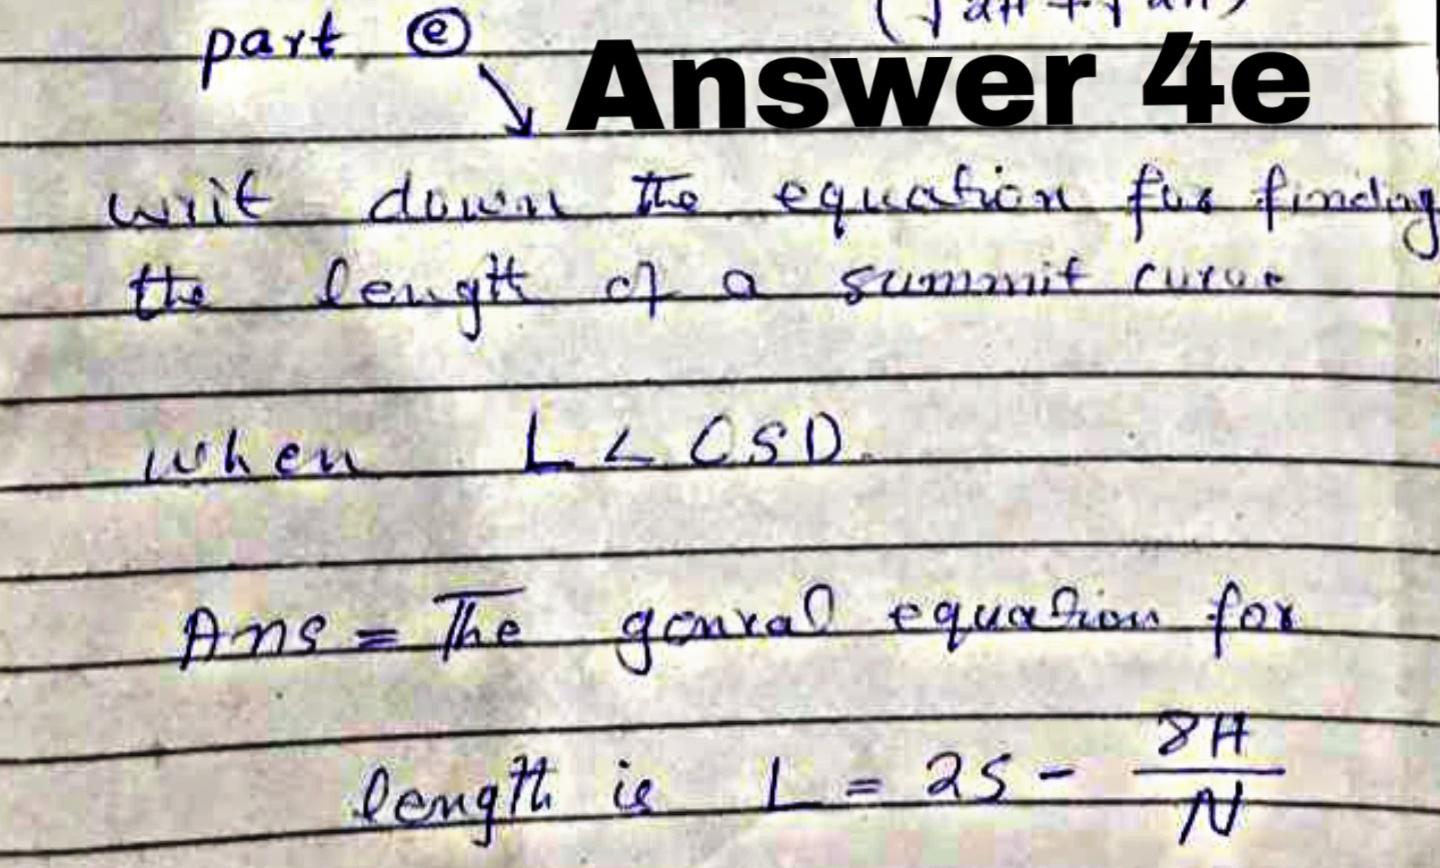 part ⓔ
Answer 4e
writ down the equation for finding
the length of a summit curve
when L < OSD.
Ans = The genral equation for
length is L = 2S - 8H/N